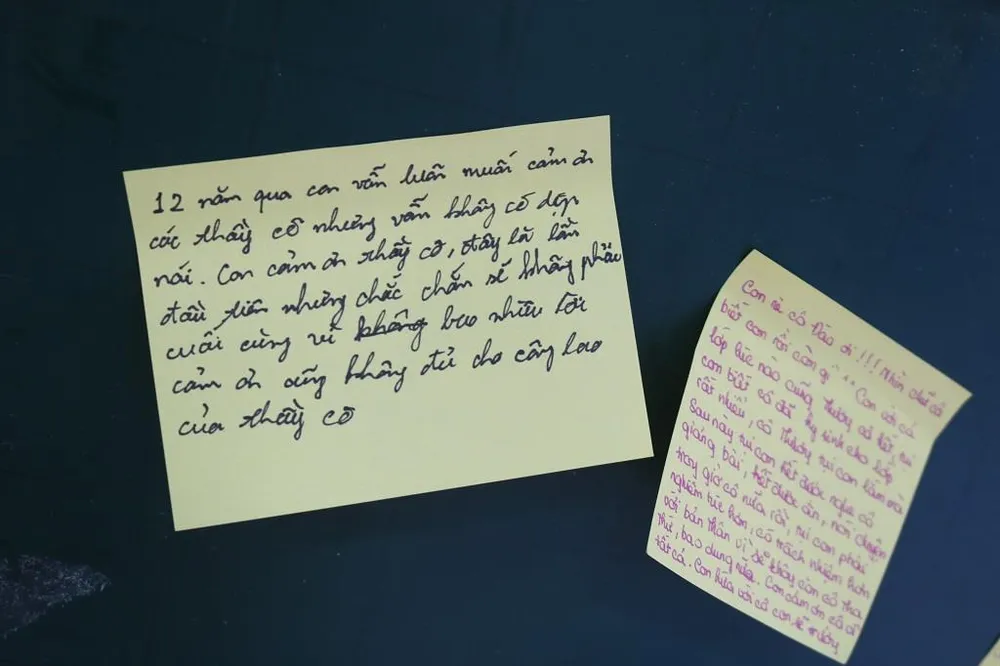 12 năm qua con vẫn luôn muốn cảm ơn
các thầy cô nhưng vẫn không có dịp
nói. Con cảm ơn thầy cô, đây là lần
đầu tiên nhưng chắc chắn sẽ không phải
cuối cùng vì không bao nhiêu lời
cảm ơn cũng không đủ cho công lao
của thầy cô
Con chị cô Đào ơi!!! Nhìn chữ cô
biết con rồi còn gì ^^ Con với cả
lớp lúc nào cũng thương cô hết, tụi
con biết cô đã hy sinh cho lớp
rất nhiều, cô thương tụi con lắm mà
Sau này tụi con hết được nghe cô
giảng bài, hết được ăn, nói chuyện
trong giờ cô nữa rồi, tụi con phải
nghiêm túc hơn, có trách nhiệm hơn
với bản thân vì sẽ không còn cô tha
thứ, bao dung nữa. Con cảm ơn cô vì
tất cả. Con hứa với cô con sẽ trưởng